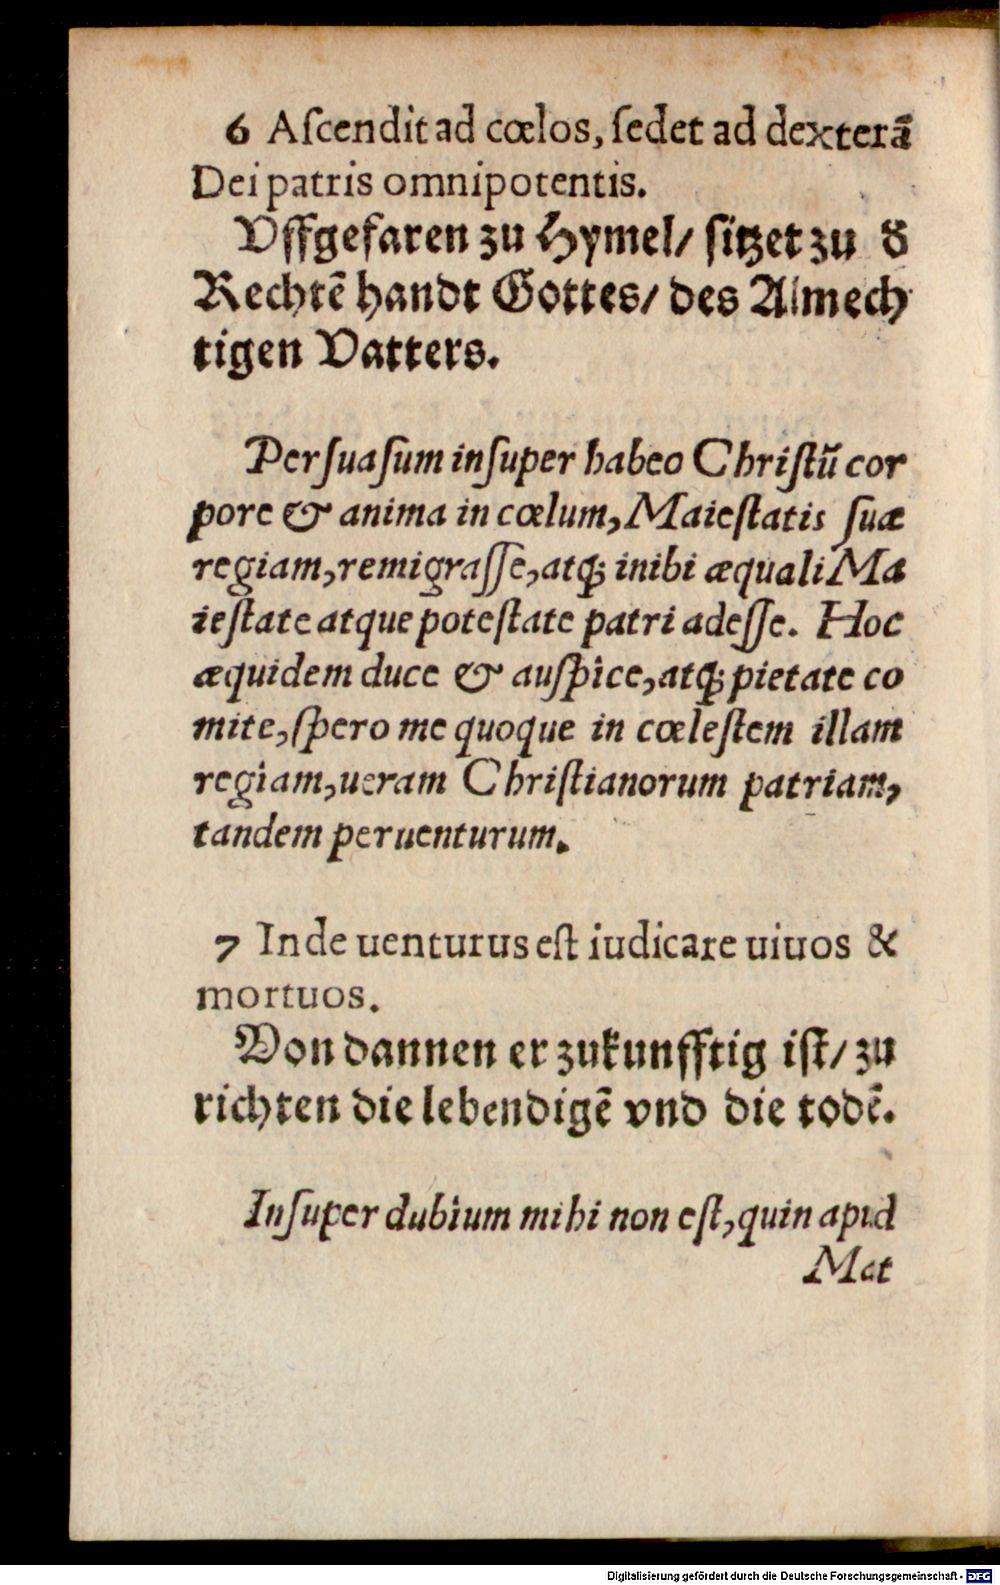 6 Aſcendit ad cœlos, ſedet ad dexterā
Dei patris omnipotentis.
Vffgefaren zu Hymel/ ſitzet zu ð
Rechtē handt Gottes/ des Almech
tigen Vatters.
Perſuaſum inſuper habeo Chriſtū cor
pore & anima in cœlum, Maieſtatis ſuæ
regiam, remigraſſe, atq; inibi æquali Ma
ieſtate atque poteſtate patri adeſſe. Hoc
æquidem duce & auſpice, atq; pietate co
mite, ſpero me quoque in cœleſtem illam
regiam, ueram Chriſtianorum patriam,
tandem peruenturum.
7 Inde uenturus eſt iudicare uiuos &
mortuos.
Von dannen er zukunfftig iſt/ zu
richten die lebendigē vnd die todē.
Inſuper dubium mihi non eſt, quin apud
Mat
Digitalisierung gefördert durch die Deutsche Forschungsgemeinschaft - DFG